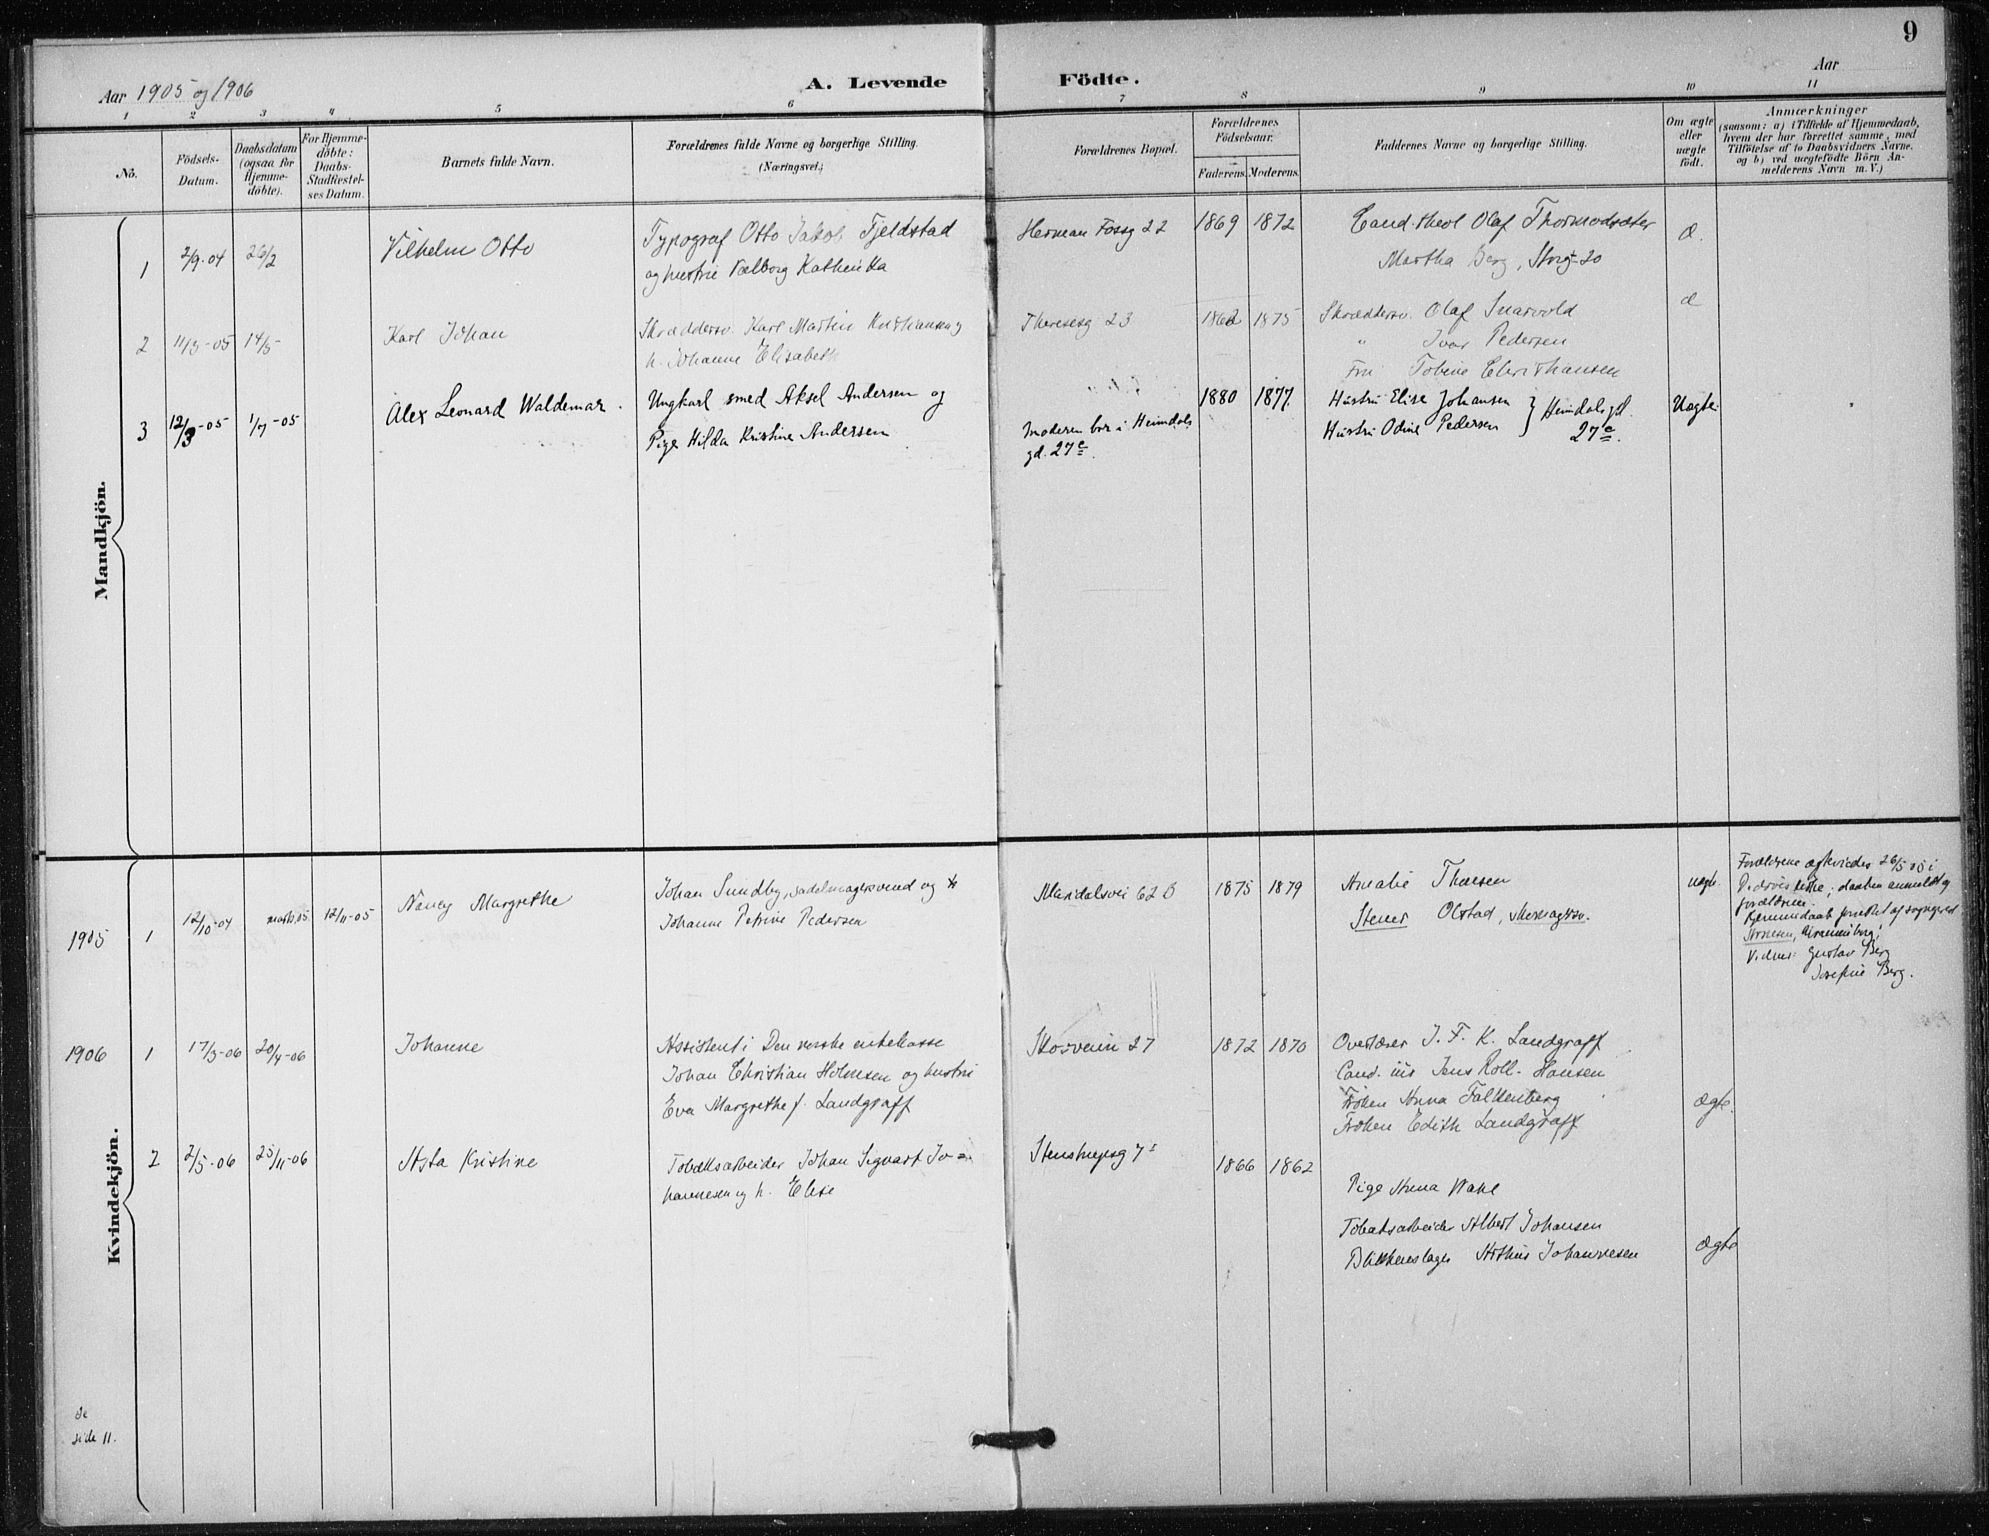 9
Aar 1905 og 1906
A. Levende Födte.
Aar
1 2 3 4 5 6 7 8 9 10 11
No.
Födsels-Datum.
Daabsdatum (ogsaa for Hjemmedöbte).
For Hjemmedöbte: Daabs-Stadfæstelses Datum.
Barnets fulde Navn.
Forældrenes fulde Navne og borgerlige Stilling.
(Næringsvei.)
Forældrenes Bopæl.
Forældrenes Födselsaar.
Faderens. Moderens.
Faddernes Navne og borgerlige Stilling.
Om ægte eller uægte födt.
Anmærkninger
(saasom: a) i Tilfælde af Hjemmedaab, hvem der har forrettet samme, med Tilföielse af to Daabsvidners Navne, og b) ved uægtefödte Börn Anmelderens Navn m. V.)
Mandkjön.
1 2/9-04 26/2 Vilhelm Otto
Typograf Otto Jakob Fjeldstad
og hustru Valborg Kathinka
Herman Fossg 22 1869 1872
Cand. theol Olaf Thormodsæter
Martha Berg, Storg 20
æ.
2 11/3-05 14/5 Karl Johan
Skræddersv. Karl Martin Kristiansen og
h. Johanne Elisabeth
Theresesg 23 1862 1875
Skræddersv. Olaf Snarvold
" Ivar Pedersen
Fru Tobine Christiansen
æ
3 12/3-05 1/7-05 Alex Leonard Waldemar.
Ungkarl smed Aksel Andersen og
Pige Hilda Kristine Andersen
Moderen bor i Heimdals
gd. 27e.
1880 1877.
Hustru Elise Johansen
Hustru Odine Pedersen } Heimdalsgd. 27e.
Uægte
Kvindekjön.
1905 1 12/10-04 12/11-05 Nancy Margrethe
Johan Sundby, sadelmagersvend og
Johanne Petrine Pedersen
Maridalsvei 62 B 1875 1879
Amalie Thoresen
Stener Olstad,
uægte
Forældrene ægteviedes 26/5 05 i
Petrus kirke; daaben anmeldt af
forældrene.
Hjemmedaab forrettet af sogneprest
Vidner: Gustav Berg
Josefine Berg.
1906 1 17/3-06 20/4-06 Johanne
Assistent i Den norske enkekasse
Johan Christian Holmsen og hustru
Eva Margrethe f. Landgraff
27 1872 1870
Overlærer J. F. K. Landgraff
Cand. jur Jens Roll-Hansen
Frøken Anna Falkenberg
Frøken Edith Landgraff
Ægte.
2 2/5-06 25/11-06 Asta Kristine
Tobaksarbeider Johan Sigvart Jo-
hannesen og h. Elise
Stenstrupsg 7 1866 1862
Pige Anna Wahl
Tobaksarbeider Albert Johansen
Blikkenslager Arthur Johannesen
Ægte
Se
side 11.